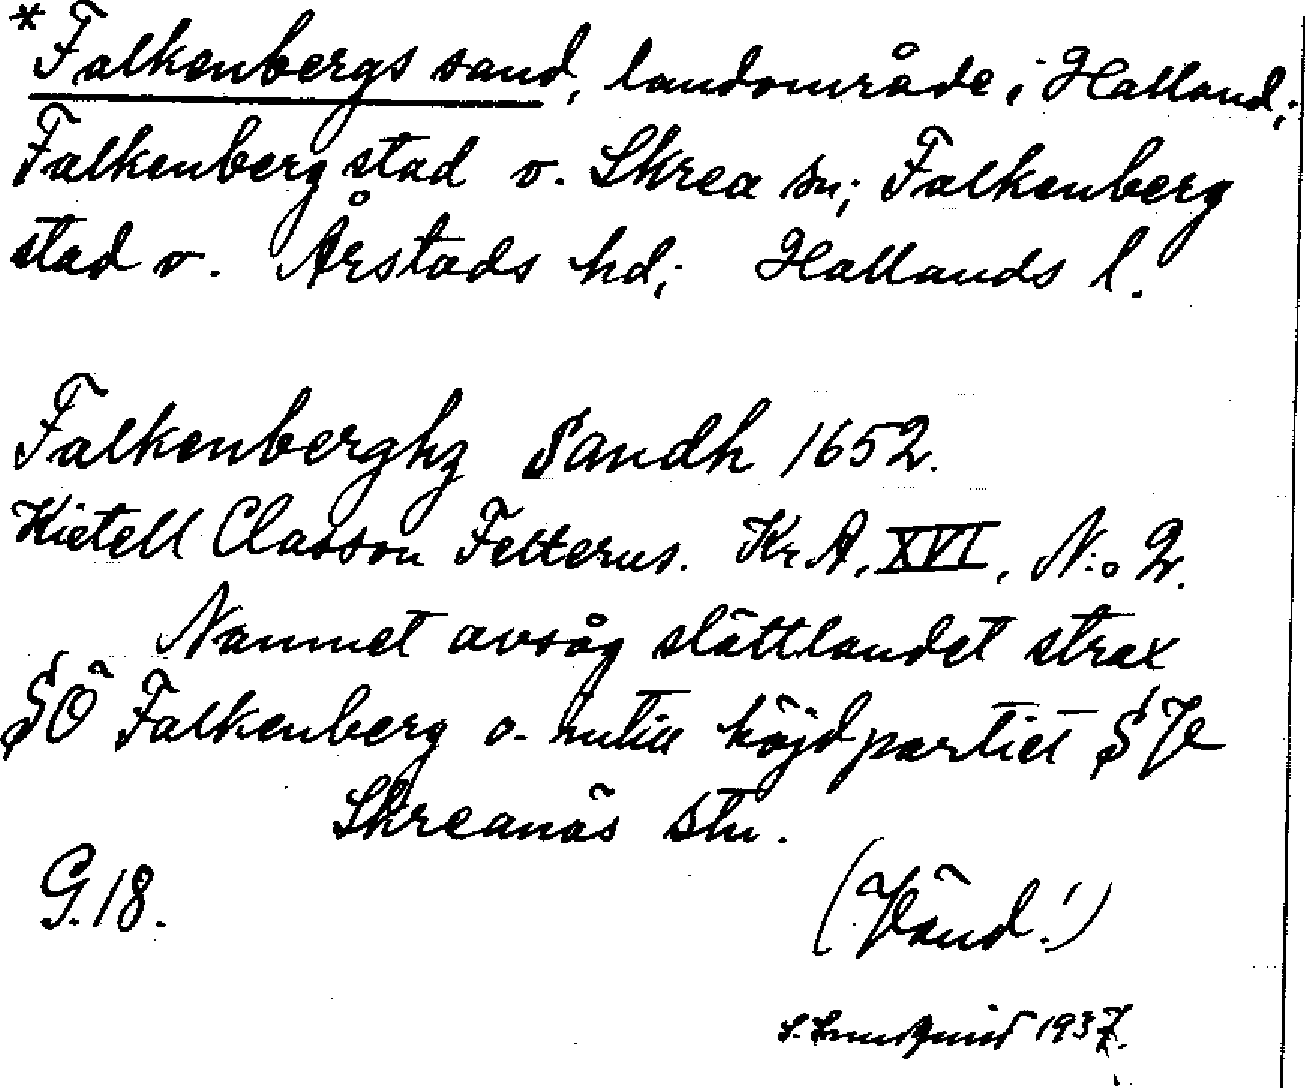 *Falkenbergs sand, landområde i Halland;
Falkenberg stad o. Skrea sn; Falkenberg
stad o. Årstads hd; Hallands l.
Falkenberghz Sandh 1652.
Kietell Classon Felterus. KrA, XVI, N:o 2.
Namnet avsåg slättlandet strax
SÖ Falkenberg o. intill höjdpartiet SV
Skreanäs stn.
G.18.
(Vänd!)
1937.